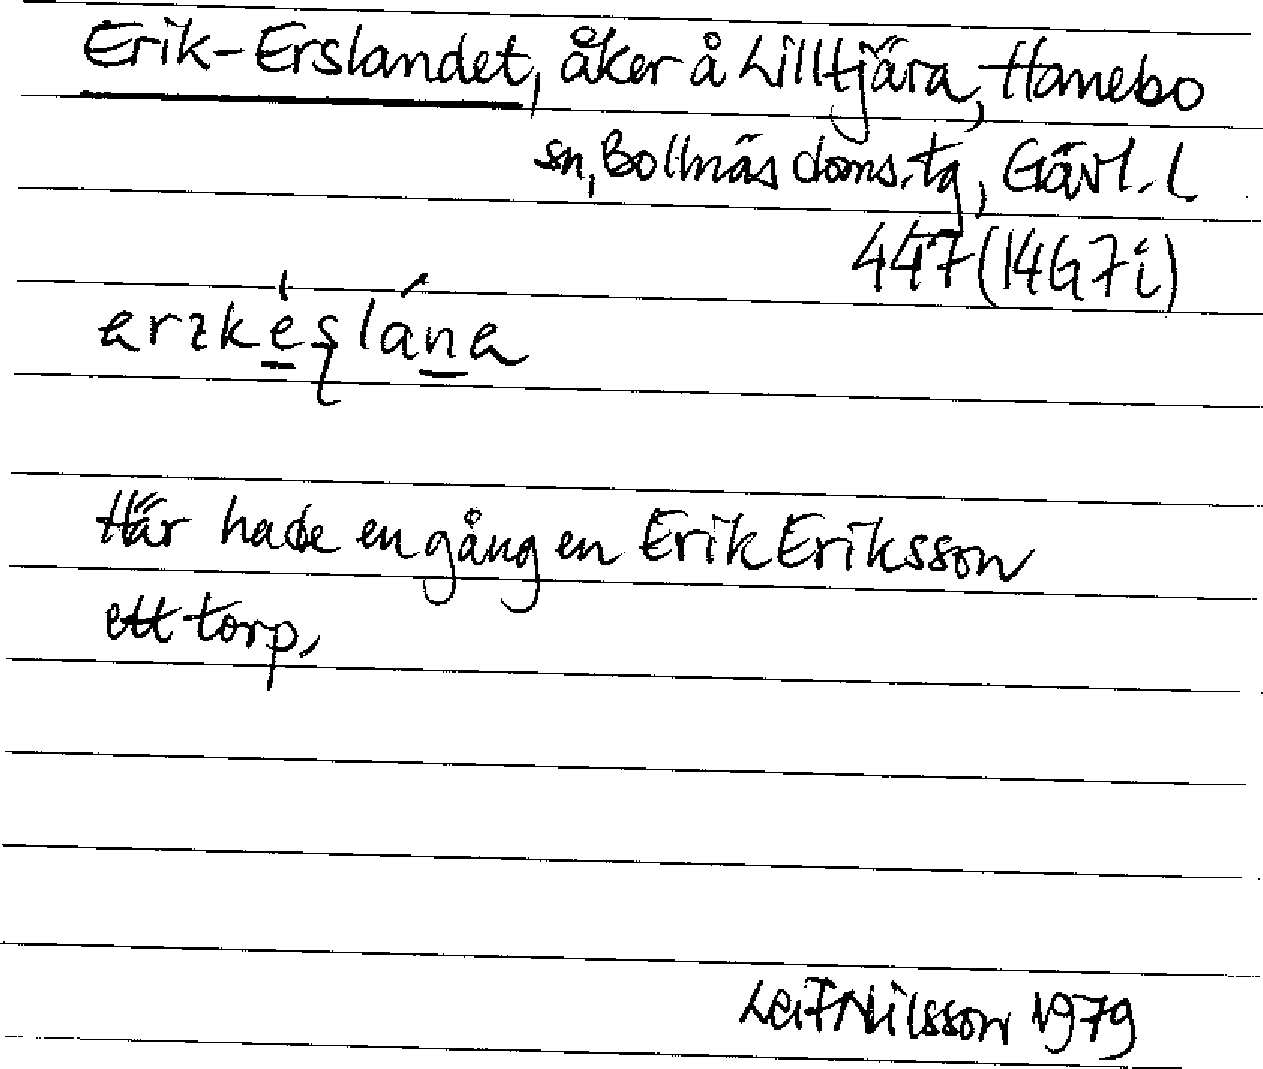 Erik-Erslandet, åker å Lilltjära, Hanebo
sn, Bollnäs doms.tg, Gävl. l
447 (14G7i)
Här hade en gång en Erik Eriksson
ett torp.
Leif Nilsson 1979